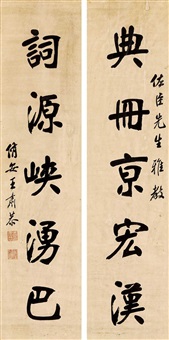 典冊亰宏漢
佐臣先生雅教
詞源峽湧巴
王肅恭